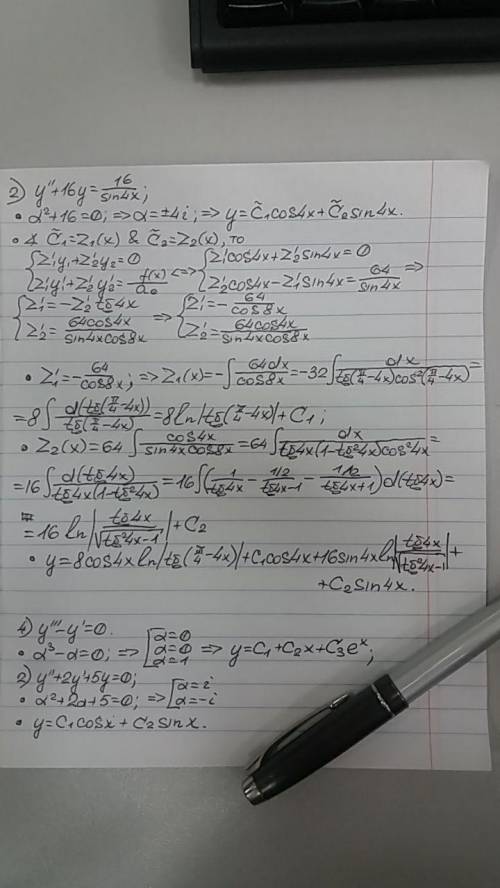 2) y''+16y=16/sin4x;
• α²+16=0; ⇒ α=±4i; ⇒ y=C̃₁cos4x+C̃₂sin4x.
• ∢ C̃₁=Z₁(x) & C̃₂=Z₂(x), то
{Z₁'y₁+Z₂'y₂=0 {Z₁'cos4x+Z₂'sin4x=0
{Z₁'y₁'+Z₂'y₂'=f(x)/a₀ <=> {Z₂'cos4x-Z₁'sin4x=64/sin4x ⇒
{Z₁'=-Z₂'tg4x {Z₁'=-64/cos8x
{Z₂'=64cos4x/sin4xcos8x ⇒ {Z₂'=64cos4x/sin4xcos8x
• Z₁'=-64/cos8x; ⇒ Z₁(x)=-∫64dx/cos8x=-32∫dx/tg(π/4-4x)cos²(π/4-4x)=
=8∫d(tg(π/4-4x))/tg(π/4-4x)=8ln|tg(π/4-4x)|+C₁;
• Z₂(x)=64∫cos4x/sin4xcos8x=64∫dx/tg4x(1-tg²4x)cos²4x=
=16∫d(tg4x)/tg4x(1-tg²4x)=16∫(1/tg4x-1/2/tg4x-1-1/2/tg4x+1)d(tg4x)=
=16ln|tg4x/√tg²4x-1|+C₂
• y=8cos4xln|tg(π/4-4x)|+C₁cos4x+16sin4xln|tg4x/√tg²4x-1|+
+C₂sin4x.
4) y'''-y'=0.
• α³-α=0; ⇒ [α=0 α=0 α=1 ⇒ y=C₁+C₂x+C₃eˣ;
2) y''+2y'+5y=0;
• α²+2α+5=0; ⇒ [α=i α=-i
• y=C₁cosx+C₂sinx.